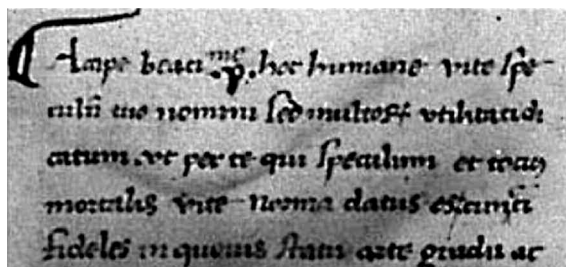 Accipe beati.me p. hoc humane vite spe-
culū tuo nomini sed multoꝝ utilitati di
catum. vt per te qui speculum et tocius
mortalis vite norma datus es cuncti
fideles in quouis statu arte gradu ac